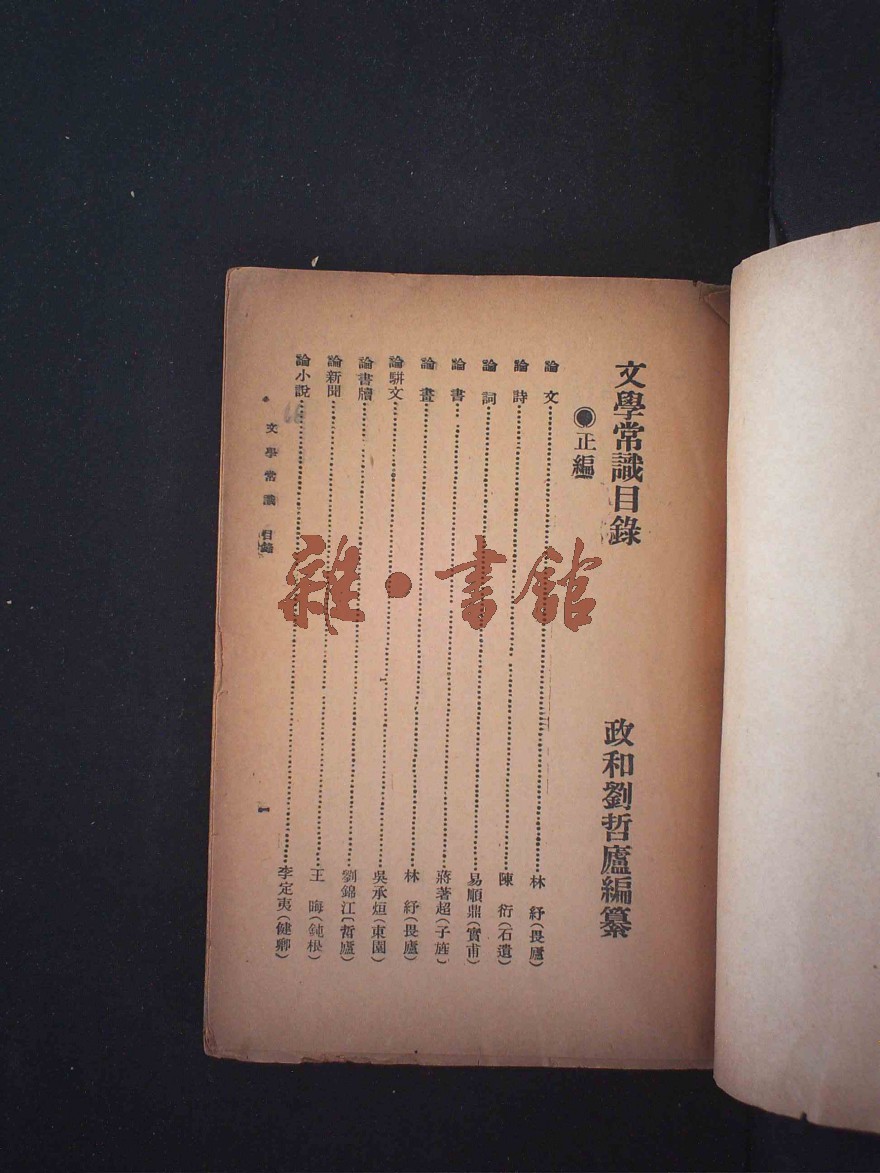 文學常識目錄 政和劉哲廬編纂
●正編
論文……林紓(畏廬)
論詩……陳衍(石遺)
論詞……易順鼎(實甫)
論書……蔣著超(子旌)
論畫……林紓(畏廬)
論駢文……吳承烜(東園)
論書牘……劉錦江(哲廬)
論新聞……王晦(鈍根)
論小說……李定夷(健卿)
文學常識 目錄
一
雜·書館